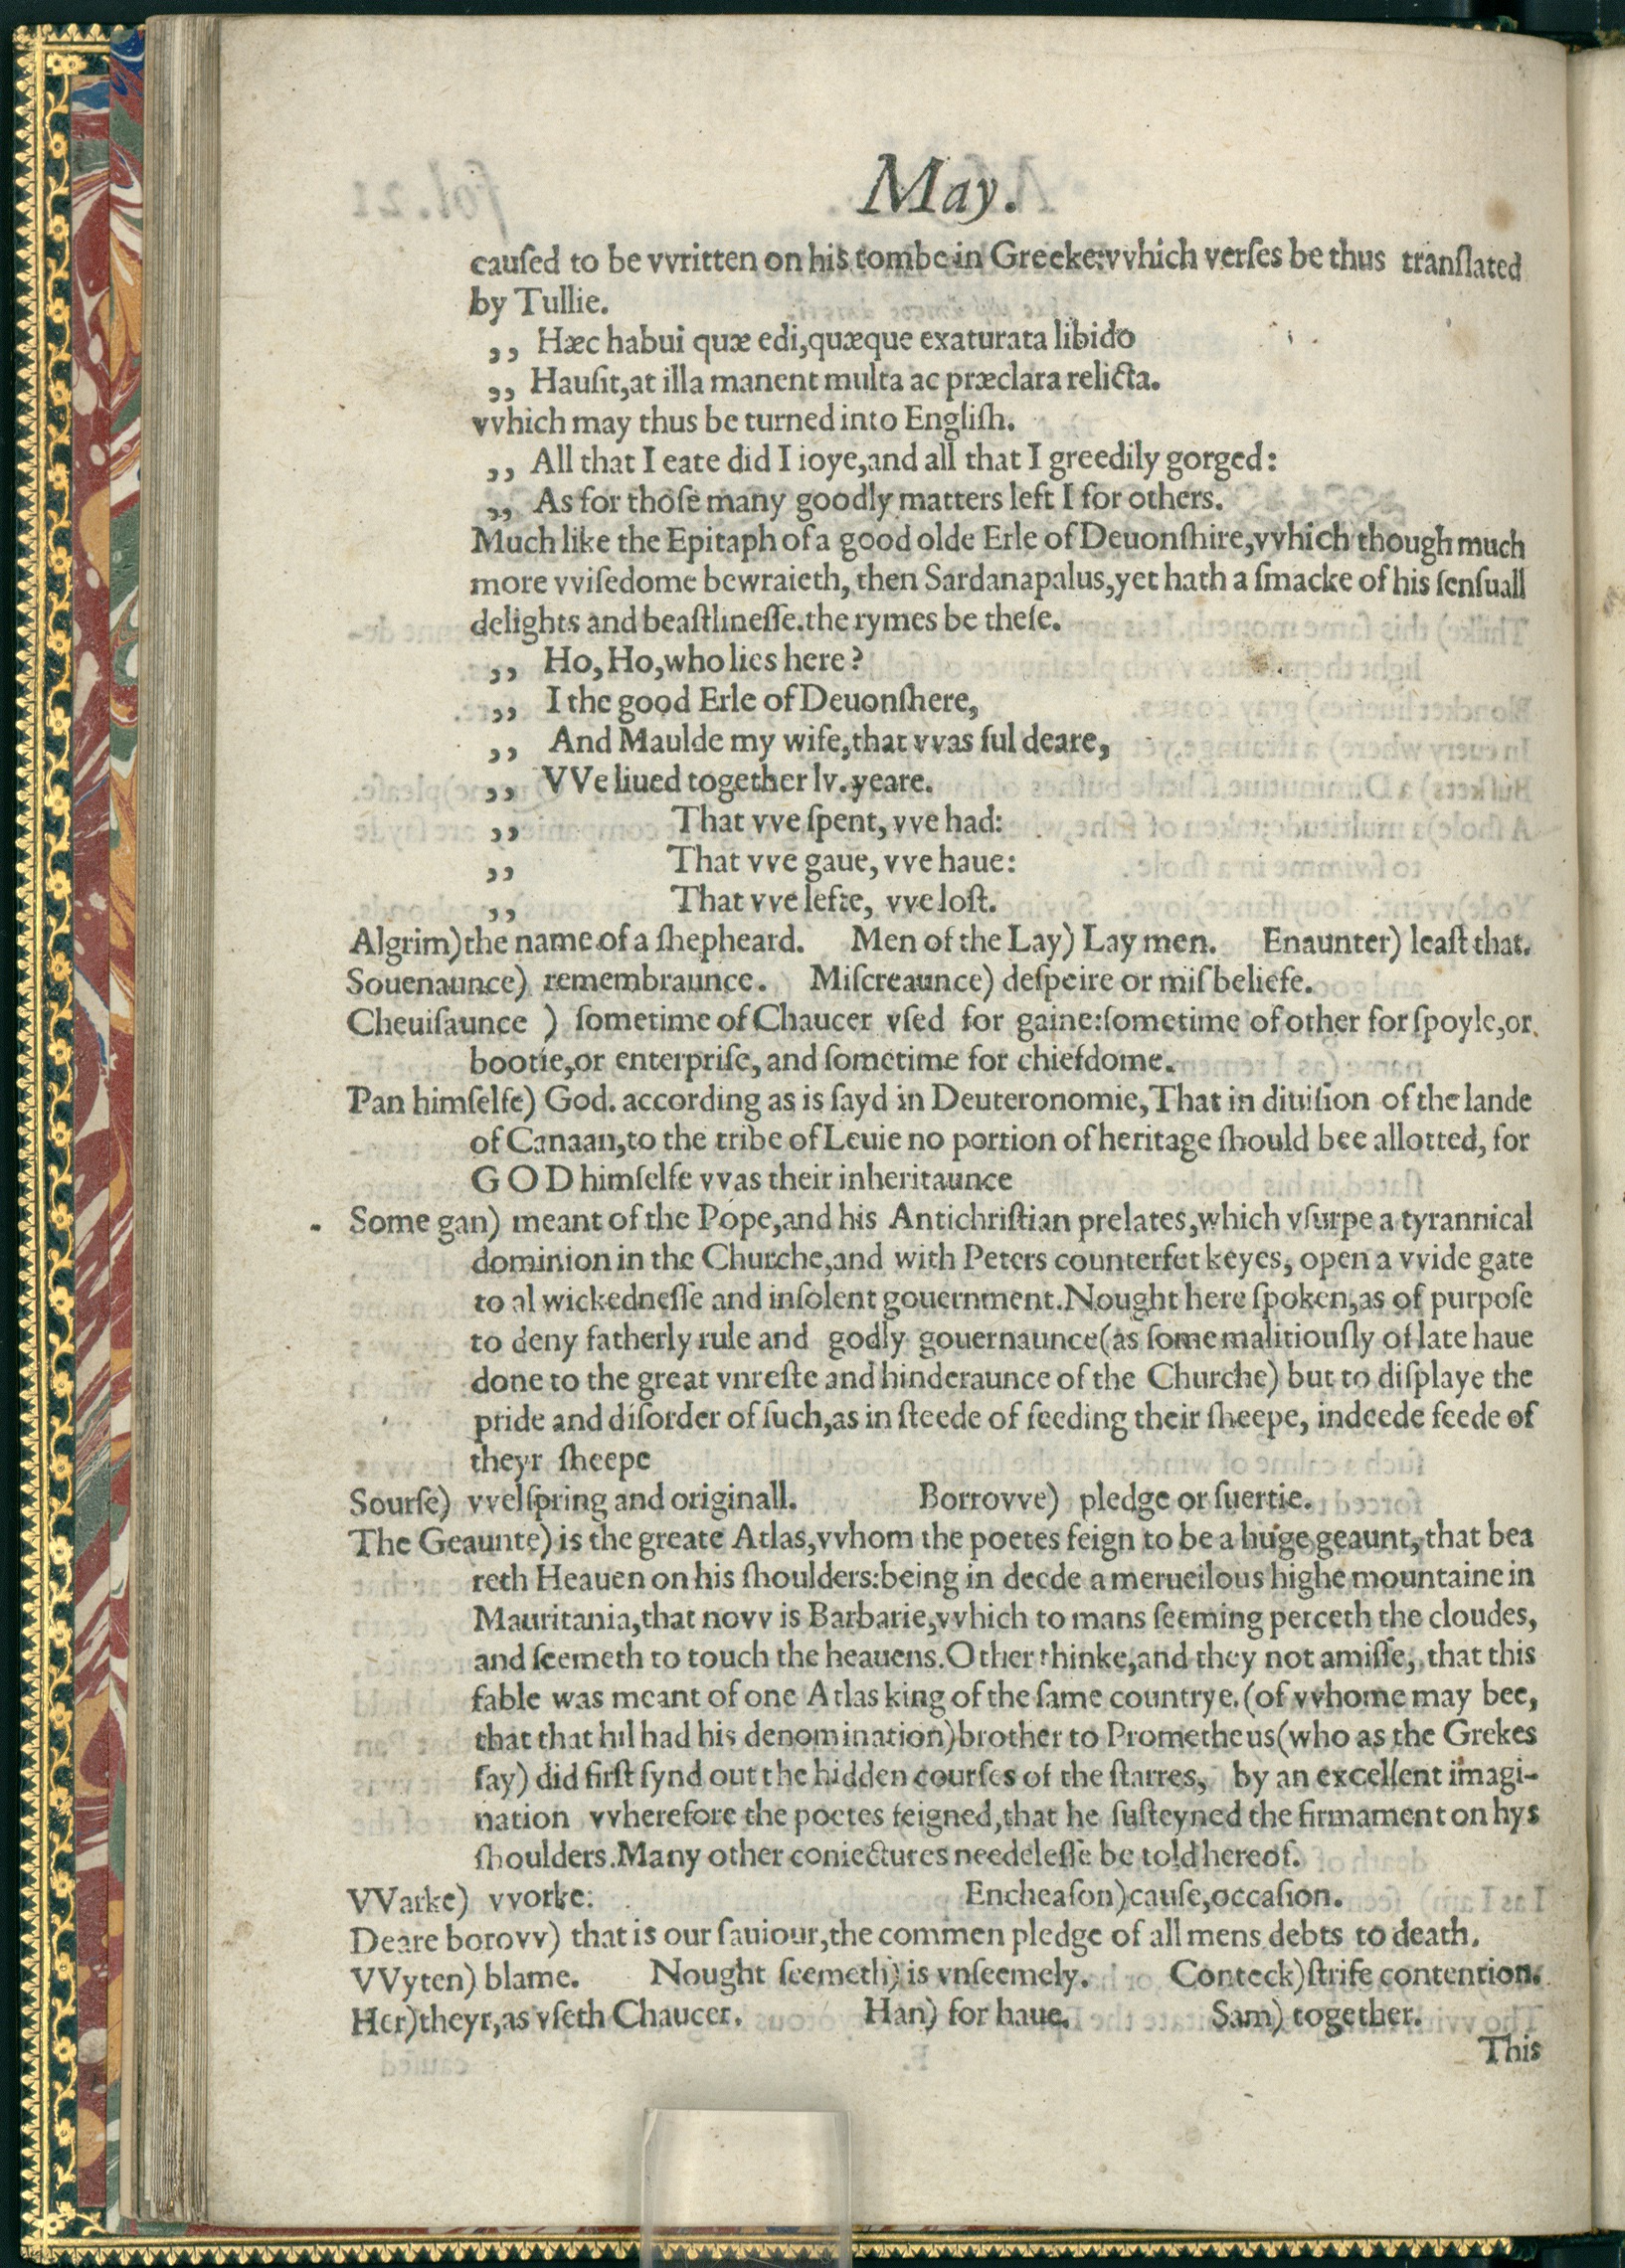 May.
cauſed to be vvritten on his tombe in Greeke:vvhich verſes be thus tranſlated
by Tullie.
,, Hæc habui quæ edi,quæque exaturata libido
,, Hauſit,at illa manent multa ac præclara relicta.
vvhich may thus be turned into Engliſh.
,, All that I eate did I ioye,and all that I greedily gorged:
,, As for thoſe many goodly matters left I for others.
Much like the Epitaph of a good olde Erle of Deuonſhire,vvhich though much
more vviſedome bewraieth, then Sardanapalus,yet hath a ſmacke of his ſenſuall
delights and beaſtlineſſe.the rymes be theſe.
,, Ho, Ho,who lies here?
,, I the good Erle of Deuonſhere,
,, And Maulde my wife,that vvas ful deare,
,, VVe liued together lv.yeare.
,, That vve ſpent, vve had:
,, That vve gaue, vve haue:
,, That vve lefte, vve loſt.
Algrim)the name of a ſhepheard. Men of the Lay) Lay men. Enaunter) leaſt that.
Souenaunce) remembraunce. Miſcreaunce) deſpeire or miſbeliefe.
Cheuiſaunce ) ſometime of Chaucer vſed for gaine:ſometime of other for ſpoyle,or
bootie,or enterpriſe, and ſometime for chiefdome.
Pan himſelfe) God. according as is ſayd in Deuteronomie,That in diuiſion of the lande
of Canaan,to the tribe of Leuie no portion of heritage ſhould bee allotted, for
G O D himſelfe vvas their inheritaunce
Some gan) meant of the Pope,and his Antichriſtian prelates,which vſurpe a tyrannical
dominion in the Churche,and with Peters counterfet keyes, open a vvide gate
to al wickedneſſe and inſolent gouernment.Nought here ſpoken,as of purpoſe
to deny fatherly rule and godly gouernaunce(as ſome malitiouſly of late haue
done to the great vnreſte and hinderaunce of the Churche) but to diſplaye the
pride and diſorder of ſuch,as in ſteede of feeding their ſheepe, indeede feede of
theyr ſheepe
Sourſe) vvelſpring and originall. Borrovve) pledge or ſuertie.
The Geaunte) is the greate Atlas,vvhom the poetes feign to be a huge geaunt,that bea
reth Heauen on his ſhoulders:being in deede a merueilous highe mountaine in
Mauritania,that novv is Barbarie,vvhich to mans ſeeming perceth the cloudes,
and ſeemeth to touch the heauens.Other thinke,and they not amiſſe, that this
fable was meant of one Atlas king of the ſame countrye.(of vvhome may bee,
that that hil had his denomination)brother to Prometheus(who as the Grekes
ſay) did firſt fynd out the hidden courſes of the ſtarres, by an excellent imagi-
nation vvherefore the poetes feigned,that he ſuſteyned the firmament on hys
ſhoulders.Many other coniectures needeleſſe be told hereof.
VVarke) vvorke: Encheaſon)cauſe,occaſion.
Deare borovv) that is our ſauiour,the commen pledge of all mens debts to death.
VVyten) blame. Nought ſeemeth) is vnſeemely. Conteck)ſtrife contention.
Her)theyr,as vſeth Chaucer. Han) for haue. Sam) together.
This